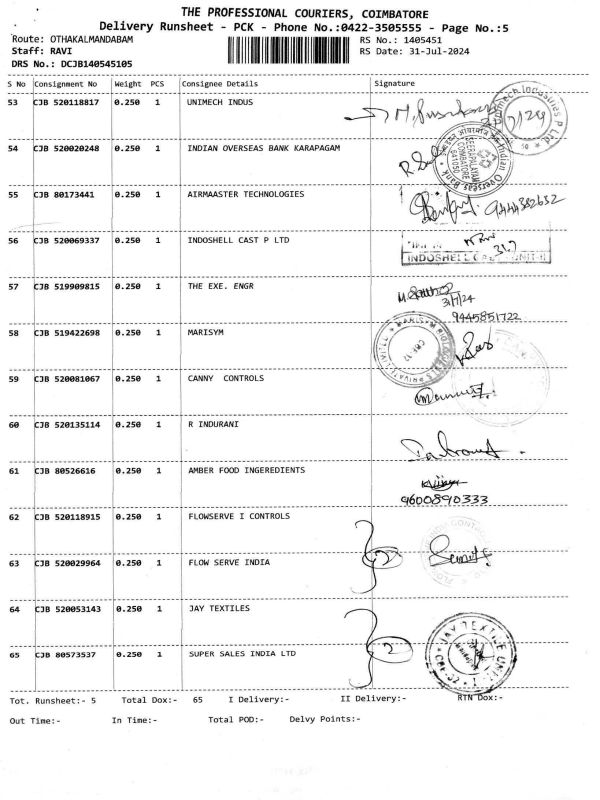 THE PROFESSIONAL COURIERS, COIMBATORE
Delivery Runsheet - PCK - Phone No.:0422-3505555 - Page No.:5
Route: OTHAKALMANDABAM RS No.: 1405451
Staff: RAVI RS Date: 31-Jul-2024
DRS No.: DCJB140545105
S No Consignment No Weight PCS Consignee Details Signature
53 CJB 520118817 0.250 1 UNIMECH INDUS
54 CJB 520020248 0.250 1 INDIAN OVERSEAS BANK KARAPAGAM
55 CJB 80173441 0.250 1 AIRMAASTER TECHNOLOGIES
9444382652
56 CJB 520069337 0.250 1 INDOSHELL CAST P LTD
31.7
57 CJB 519909815 0.250 1 THE EXE. ENGR
31/7/24
9445851722
58 CJB 519422698 0.250 1 MARISYM
59 CJB 520081067 0.250 1 CANNY CONTROLS
60 CJB 520135114 0.250 1 R INDURANI
61 CJB 80526616 0.250 1 AMBER FOOD INGEREDIENTS
9600890333
62 CJB 520118915 0.250 1 FLOWSERVE I CONTROLS
63 CJB 520029964 0.250 1 FLOW SERVE INDIA
2
64 CJB 520053143 0.250 1 JAY TEXTILES
JAY TEXTILE UNIT
65 CJB 80573537 0.250 1 SUPER SALES INDIA LTD
2
Tot. Runsheet:- 5 Total Dox:- 65 I Delivery:- II Delivery:- RTN Dox:-
Out Time:- In Time:- Total POD:- Delvy Points:-